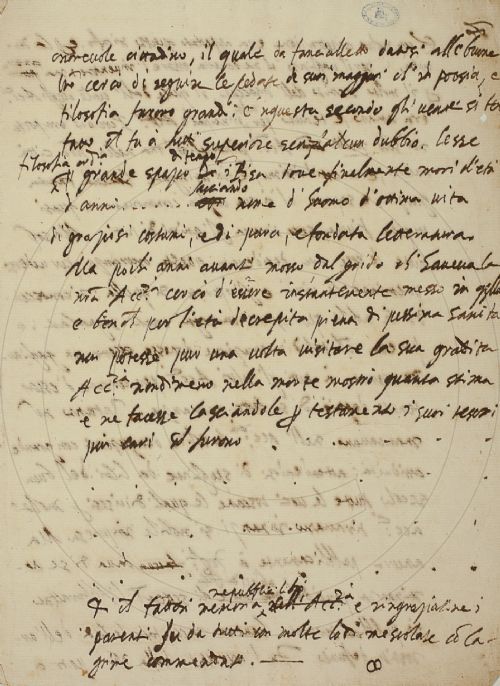 onorevole cittadino, il quale da fanciulletto datosi alle buone
cercò di seguire le pedate de suoi maggiori ch' in poesia, e
filosofia furono grandi: e in questa secondo gli venne si
fatto, superiore senz'alcun dubbio. Lesse
filosofia
di tempo
grande spazio in Pisa dove finalmente morì d'età
lasciando
d'anni ........ nome d'huomo d'ottima vita
di graziosi costumi, e di pura, e fondata letteratura.
Ma pochi anni avanti mosso dal grido che haveva la
nra Acc.a cercò d'essere instantemente messo in
e benche per l'età decrepita piena di pessima sanità
non potesse pur una volta visitare la sua gradita
Acc.a nondimeno nella morte mostrò quanta stima
e ne facesse lasciandole testamento i suoi tesori
più cari furono
nell'Acc.a e ringraziatine i
parenti fu da tutti con molte lodi mescolate co la-
grime commendato. —
8